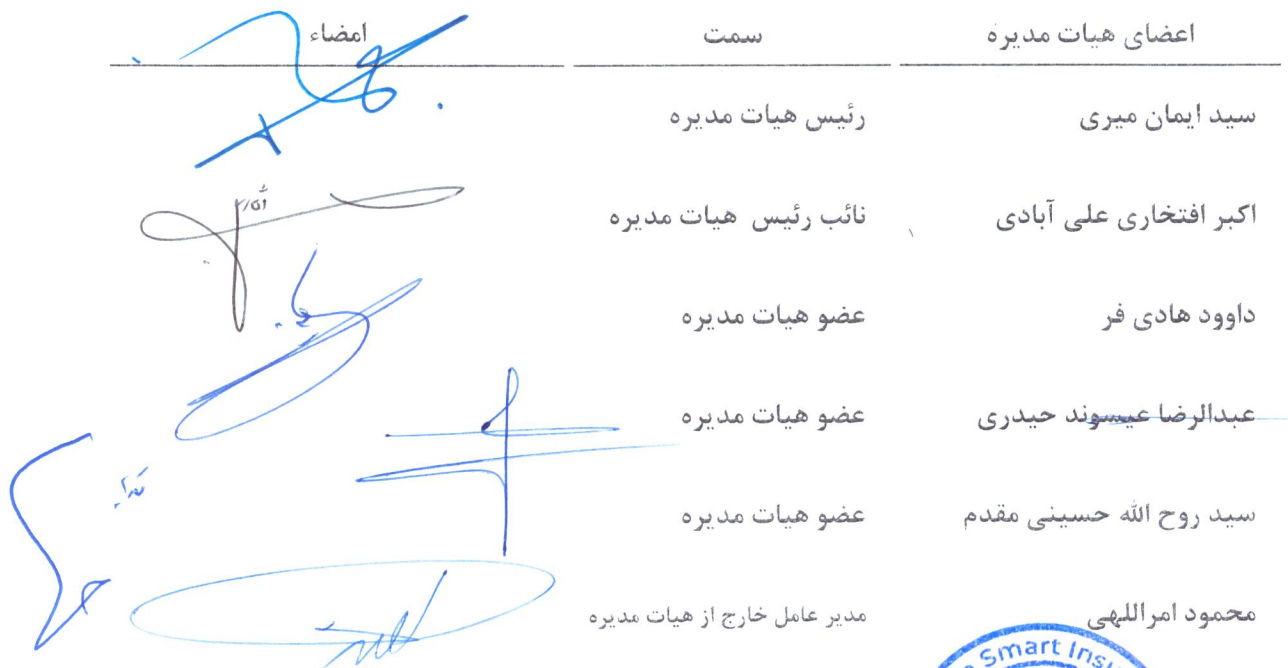 اعضای هیات مدیره سمت امضاء
سید ایمان میری رئیس هیات مدیره
اکبر افتخاری علی آبادی نائب رئیس هیات مدیره
داوود هادی فر عضو هیات مدیره
عبدالرضا عیسوند حیدری عضو هیات مدیره
سید روح الله حسینی مقدم عضو هیات مدیره
محمود امراللهی مدیر عامل خارج از هیات مدیره
Smart